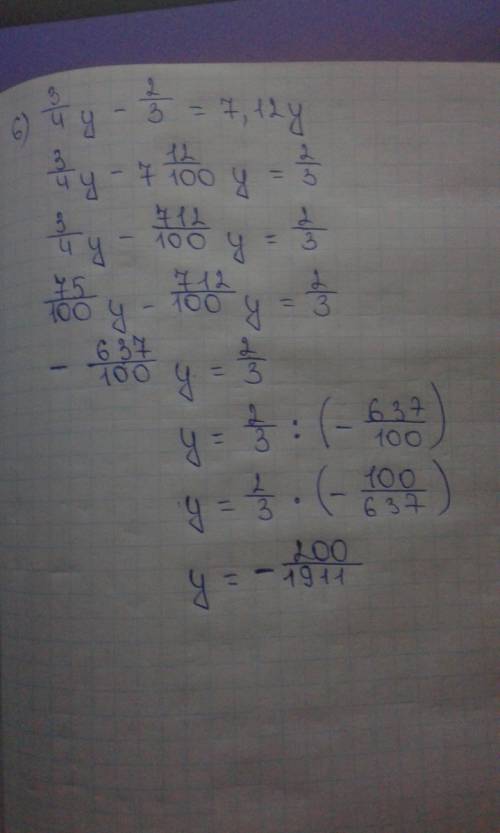 б) 3/4 y - 2/3 = 7,12y
3/4 y - 7 12/100 y = 2/3
3/4 y - 712/100 y = 2/3
75/100 y - 712/100 y = 2/3
- 637/100 y = 2/3
y = 2/3 : (- 637/100)
y = 2/3 · (- 100/637)
y = - 200/1911